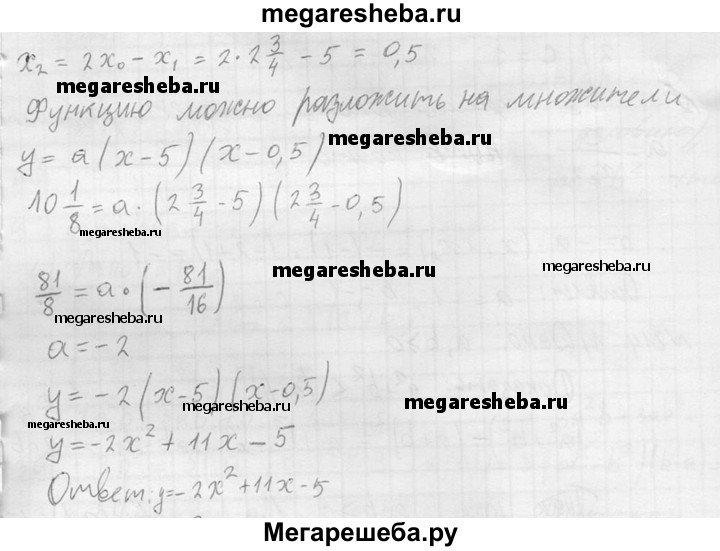 megaresheba.ru
x₂ = 2x₀ - x₁ = 2·2 3/4 - 5 = 0,5
megaresheba.ru
Функцию можно разложить на множители
megaresheba.ru
y = a(x-5)(x-0,5)
megaresheba.ru
10 1/8 = a·(2 3/4 - 5)(2 3/4 - 0,5)
megaresheba.ru
megaresheba.ru
megaresheba.ru
81/8 = a·(- 81/16)
megaresheba.ru
a = -2
y = -2(x-5)(x-0,5)
megaresheba.ru
megaresheba.ru
megaresheba.ru
y = -2x² + 11x - 5
Ответ: y = -2x² + 11x - 5
Мегарешеба.ру